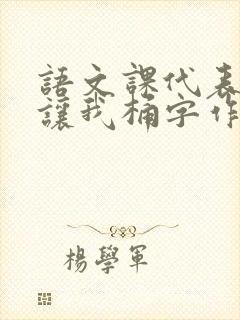 語文課代表
讓我桶字作
楊學軍